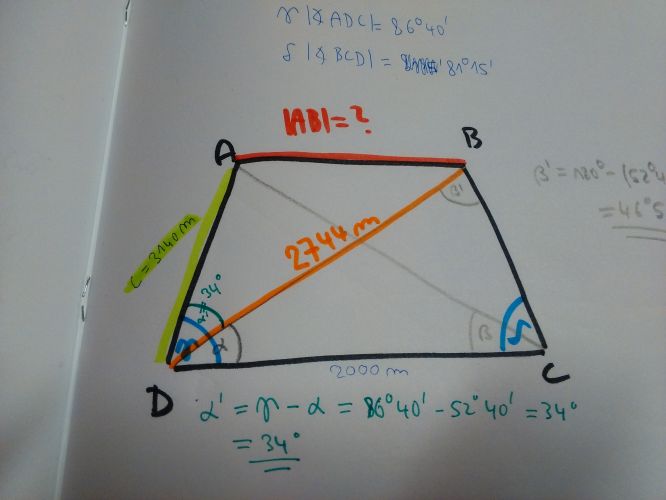 γ |∢ADC| = 86°40'
δ |∢BCD| = 81°15'
|AB| = ?
A
B
β' = 180° - (52°4
= 46°5
β'
2744 m
c = 3140 m
34°
γ
α
β
δ
2000 m
D
C
α' = γ - α = 86°40' - 52°40' = 34°
= 34°